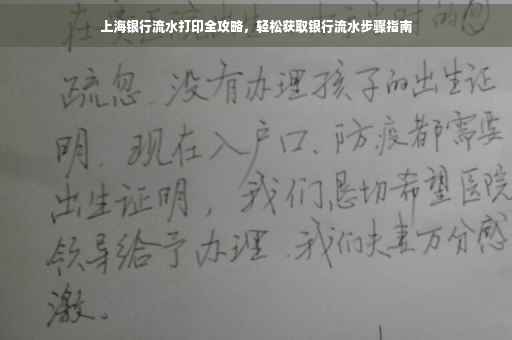 上海银行流水打印全攻略，轻松获取银行流水步骤指南
疏忽、没有办理孩子的出生证
明．现在入户口、防疫都需要
出生证明，我们恳切希望医院
领导给予办理．我们夫妻万分感
激。